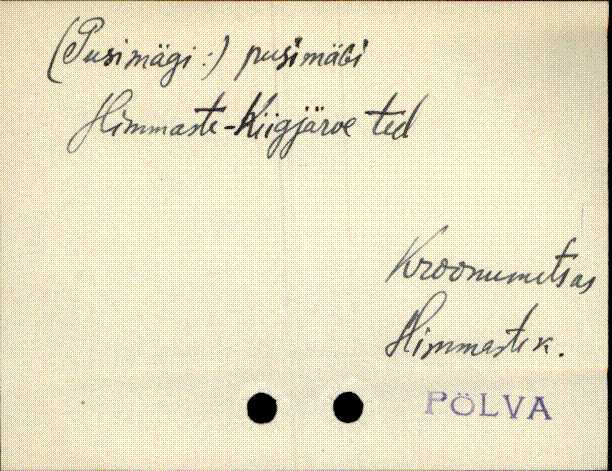 (Pusimägi:) pusimäǵi
Himmaste-Kiigjärve ted
Kroonumetsas
Himmaste k.
PÕLVA